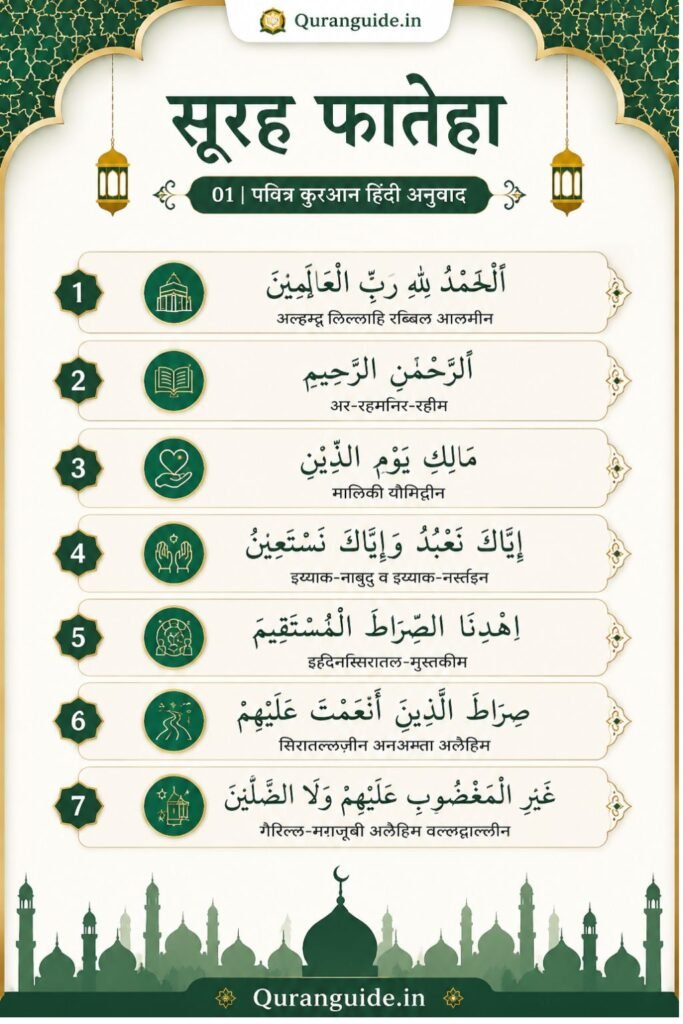 Quranguide.in
सूरह फातेहा
01 | पवित्र कुरआन हिंदी अनुवाद
1
ٱلْحَمْدُ لِلّٰهِ رَبِّ الْعَالَمِيْنَ
अल्हम्दू लिल्लाहि रब्बिल आलमीन
2
ٱلرَّحْمٰنِ الرَّحِيمِ
अर-रहमनिर-रहीम
3
مَالِكِ يَوْمِ الذِّيْنِ
मालिकी यौमिद्दीन
4
إِيَّاكَ نَعْبُدُ وَإِيَّاكَ نَسْتَعِيْنُ
इय्याक-नाबुदु व इय्याक-नर्स्तइन
5
اِهْدِنَا الصِّرَاطَ الْمُسْتَقِيمَ
इहदिनस्सिरातल-मुस्तकीम
6
صِرَاطَ الَّذِينَ أَنْعَمْتَ عَلَيْهِمْ
सिरातल्लज़ीन अनअमता अलैहिम
7
غَيْرِ الْمَغْضُوبِ عَلَيْهِمْ وَلَا الضَّلَّيْنَ
गैरिल्ल-मग़जूबी अलैहिम वल्लद्वाल्लीन
Quranguide.in